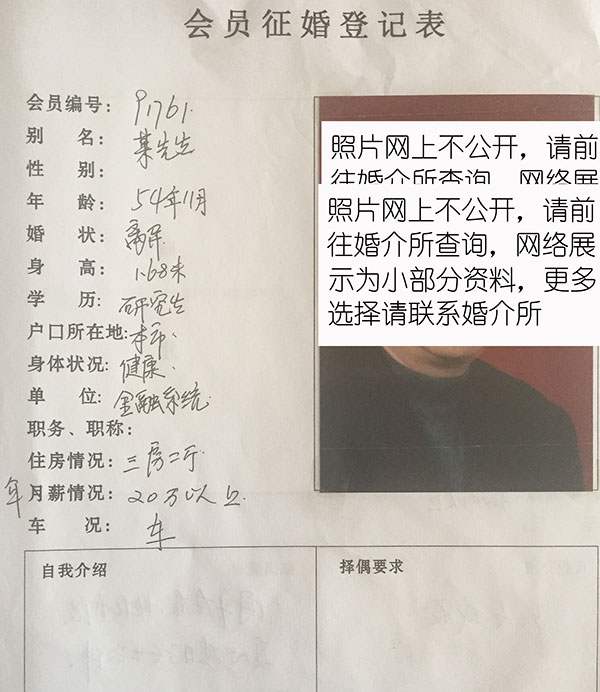 会员征婚登记表
会员编号: 91761.
别 名: 某先生
性 别:
年 龄: 54年11月
婚 状: 离异
身 高: 1.68米
学 历: 研究生
户口所在地: 本市.
身体状况: 健康.
单 位: 金融系统.
职务、职称:
住房情况: 三房二厅
年月薪情况: 20万以上
车 况: 车
照片网上不公开，请前
往婚介所查询，网络展
照片网上不公开，请前
往婚介所查询，网络展
示为小部分资料，更多
选择请联系婚介所
自我介绍
择偶要求